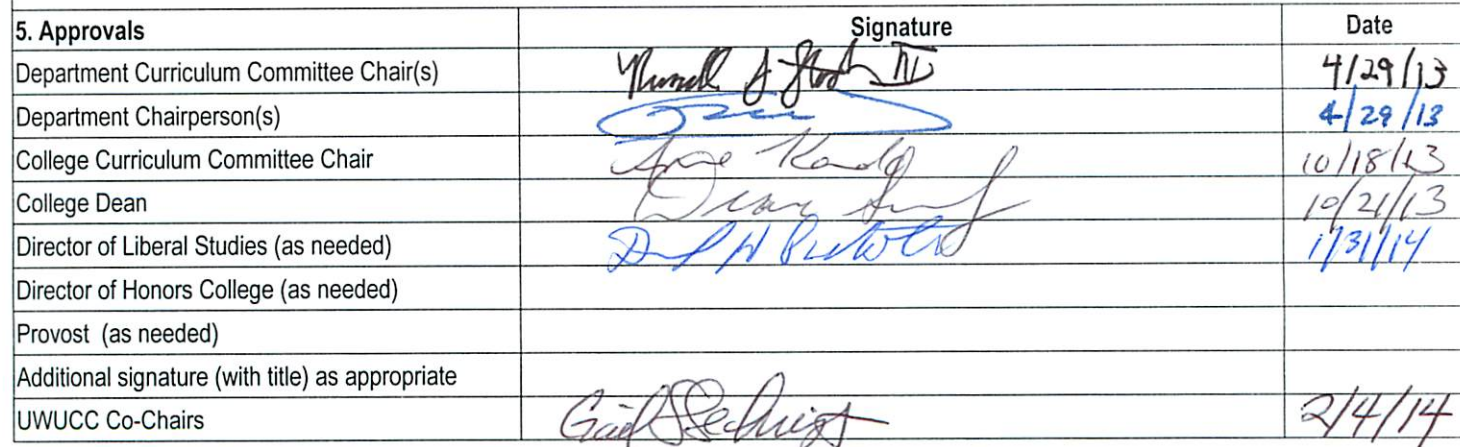 5. Approvals Signature Date
Department Curriculum Committee Chair(s) 4/29/13
Department Chairperson(s) 4/29/13
College Curriculum Committee Chair 10/18/13
College Dean 10/21/13
Director of Liberal Studies (as needed) 1/31/14
Director of Honors College (as needed)
Provost (as needed)
Additional signature (with title) as appropriate
UWUCC Co-Chairs Gail Sechrist 2/4/14